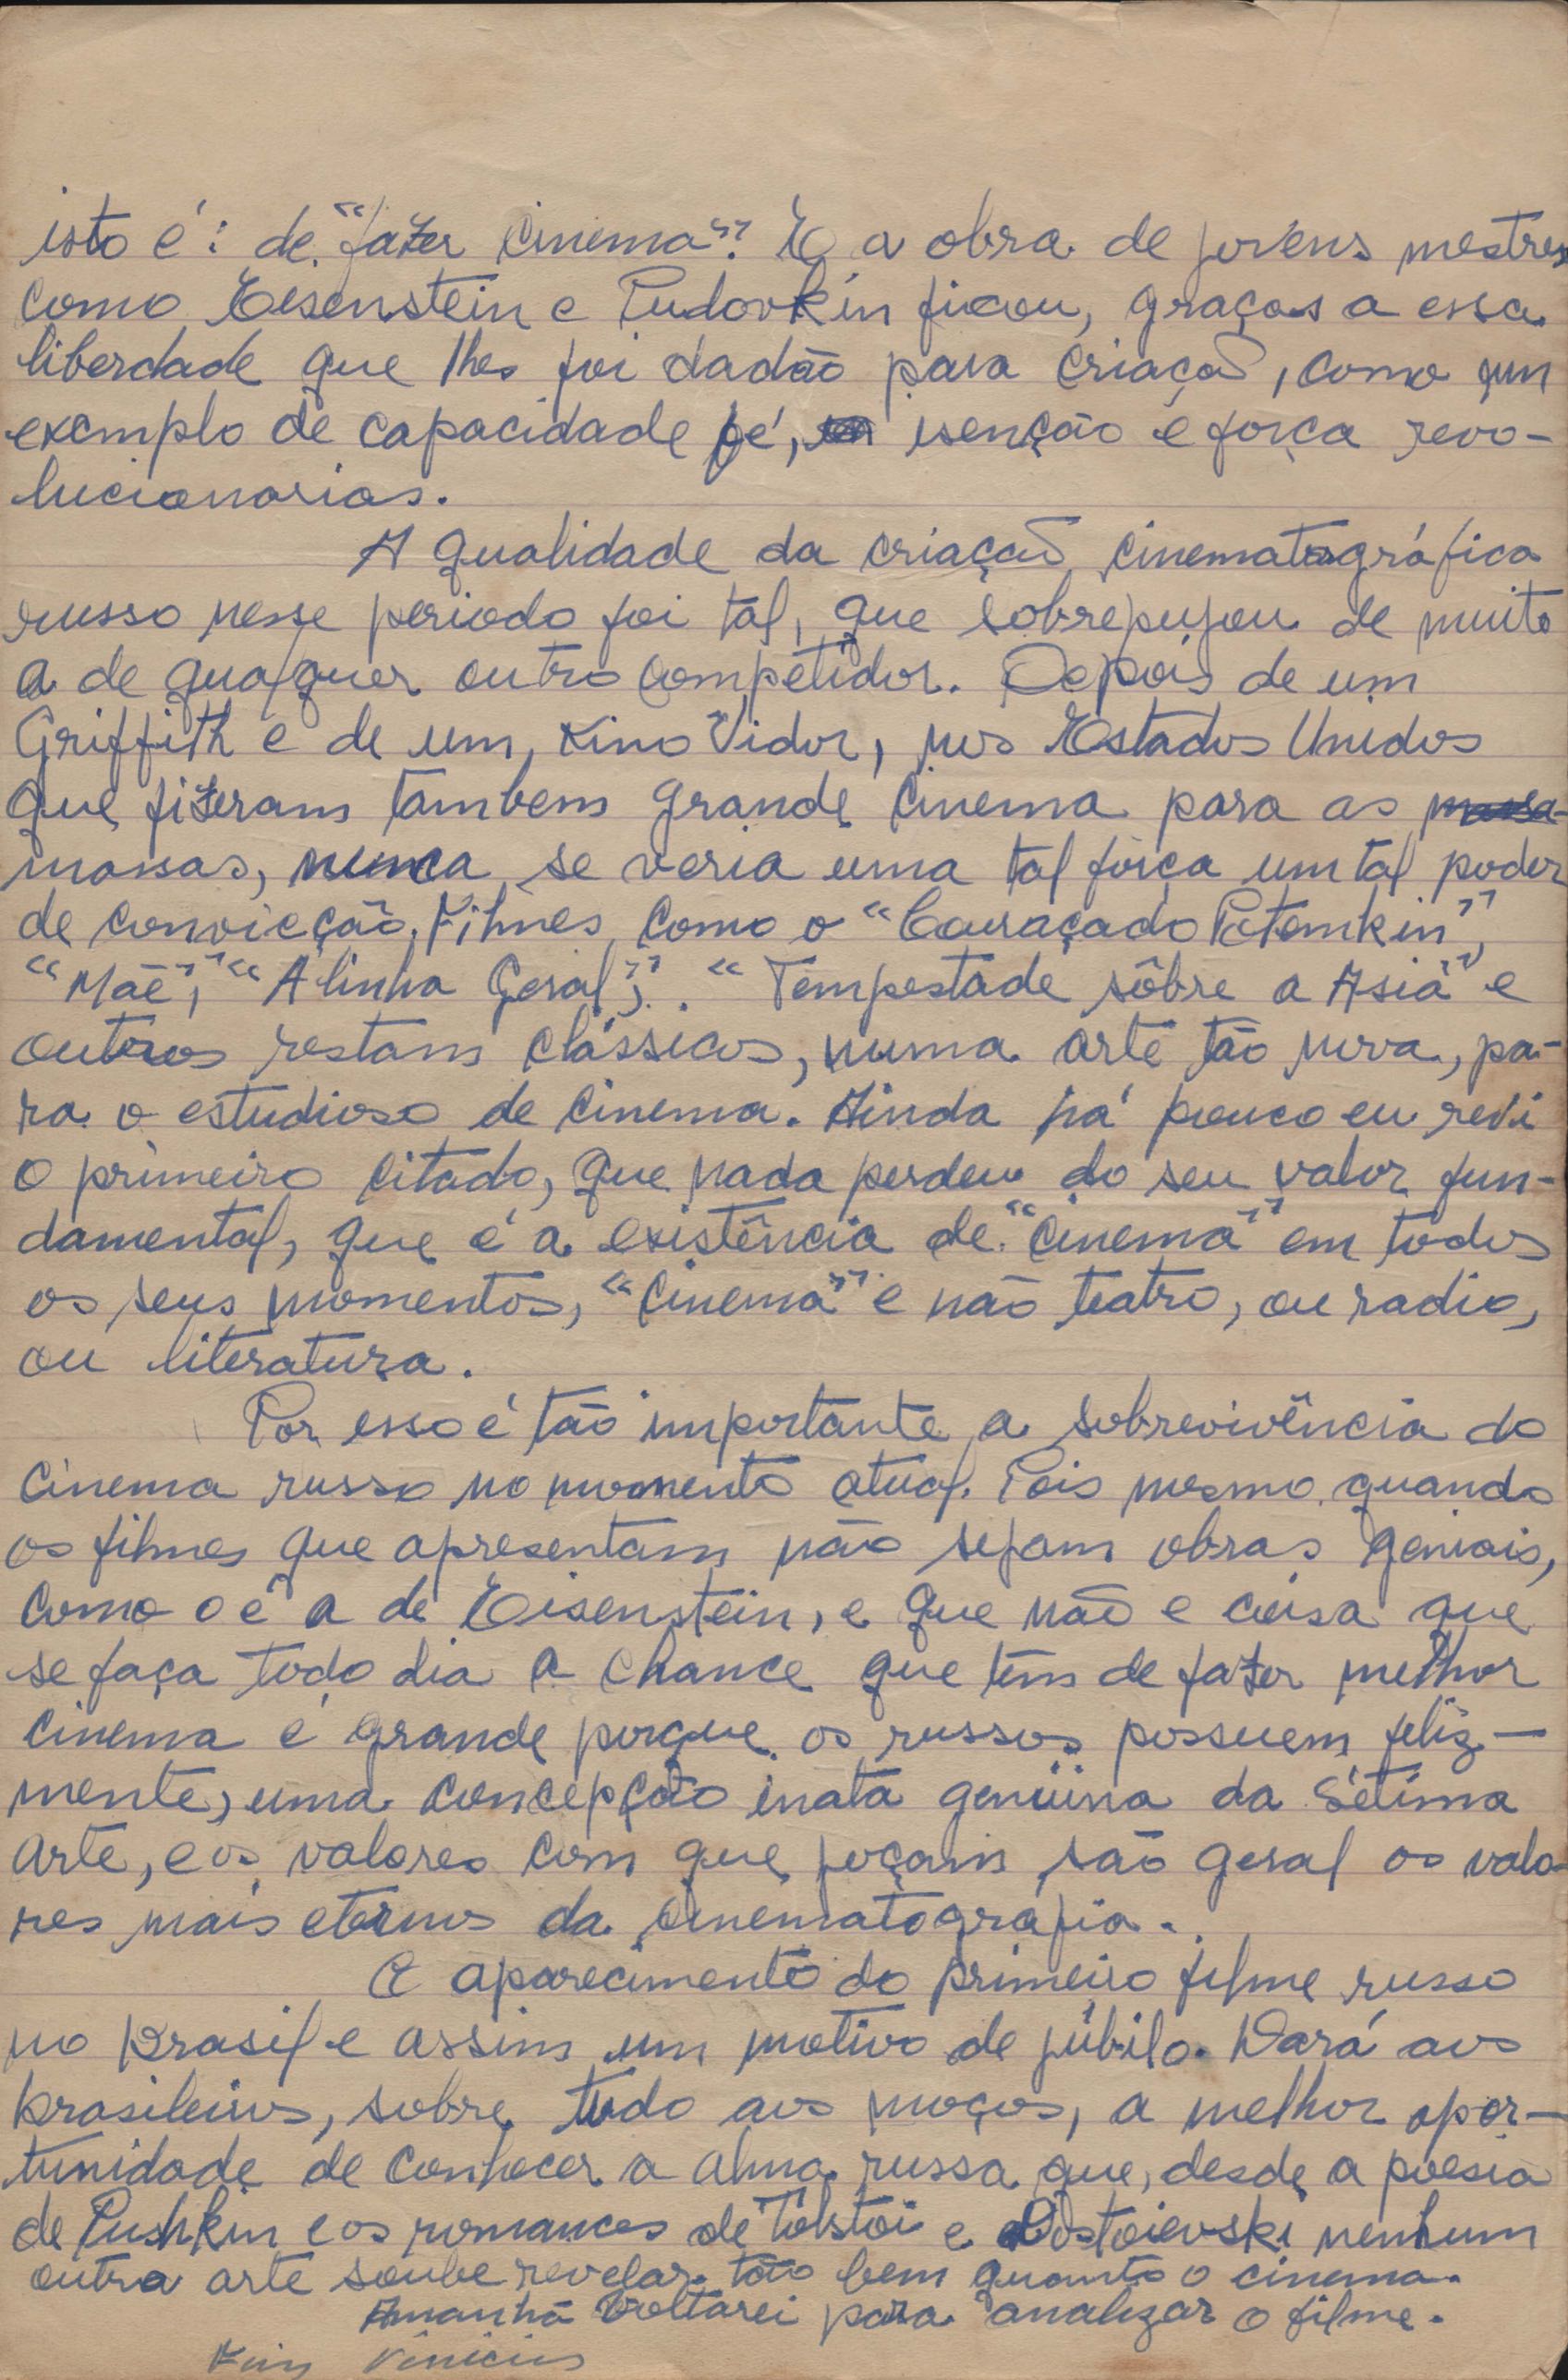 isto é: de "fazer cinema". E a obra de jovens mestres
como Eisenstein e Pudovkin ficou, graças a essa
liberdade que lhes foi dadão para criação, como um
exemplo de capacidade fé, isenção e força revo-
lucionarias.
A qualidade da criação cinematográfica
russo nesse periodo foi tal, que sobrepujou de muito
a de qualquer outro competidor. Depois de um
Griffith e de um, King Vidor, nos Estados Unidos
que fizeram tambem grande cinema para as massa-
massas, nunca se veria uma tal força um tal poder
de convicção. Filmes como o "Couraçado Potemkin",
"Mãe", "A linha Geral", "Tempestade sôbre a Asia" e
outros restam clássicos, numa arte tão nova, pa-
ra o estudioso de cinema. Ainda há pouco eu revi
o primeiro citado, que nada perdeu do seu valor fun-
damental, que é a existência de "cinema" em todos
os seus momentos, "cinema" e não teatro, ou radio,
ou literatura.
Por isso é tão importante a sobrevivência do
cinema russo no momento atual. Pois mesmo quando
os filmes que apresentam não sejam obras geniais,
como o é a de Eisenstein, e que não e coisa que
se faça todo dia a chance que têm de fazer melhor
cinema é grande porque os russos possuem feliz-
mente, uma concepção inata genuina da Sétima
arte, e os valores com que jogam são geral os valo-
res mais eternos da cinematografia.
O aparecimento do primeiro filme russo
no Brasil e assim um motivo de júbilo. Dará aos
brasileiros, sobre tudo aos moços, a melhor opor-
tunidade de conhecer a alma russa que, desde a poesia
de Pushkin e os romances de Tolstoi e Dostoievski nenhum
outra arte soube revelar tão bem quanto o cinema.
Amanhã voltarei para analizar o filme.
Fim Vinicius